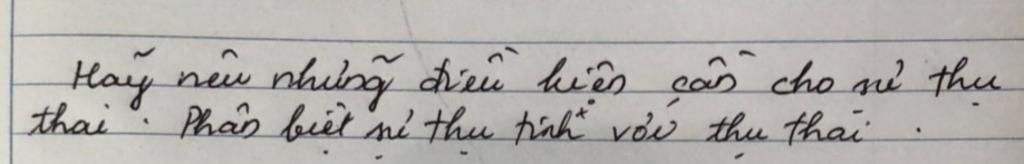 Hãy nêu những điều kiện cần cho sự thụ
thai. Phân biệt sự thụ tinh* với thụ thai.